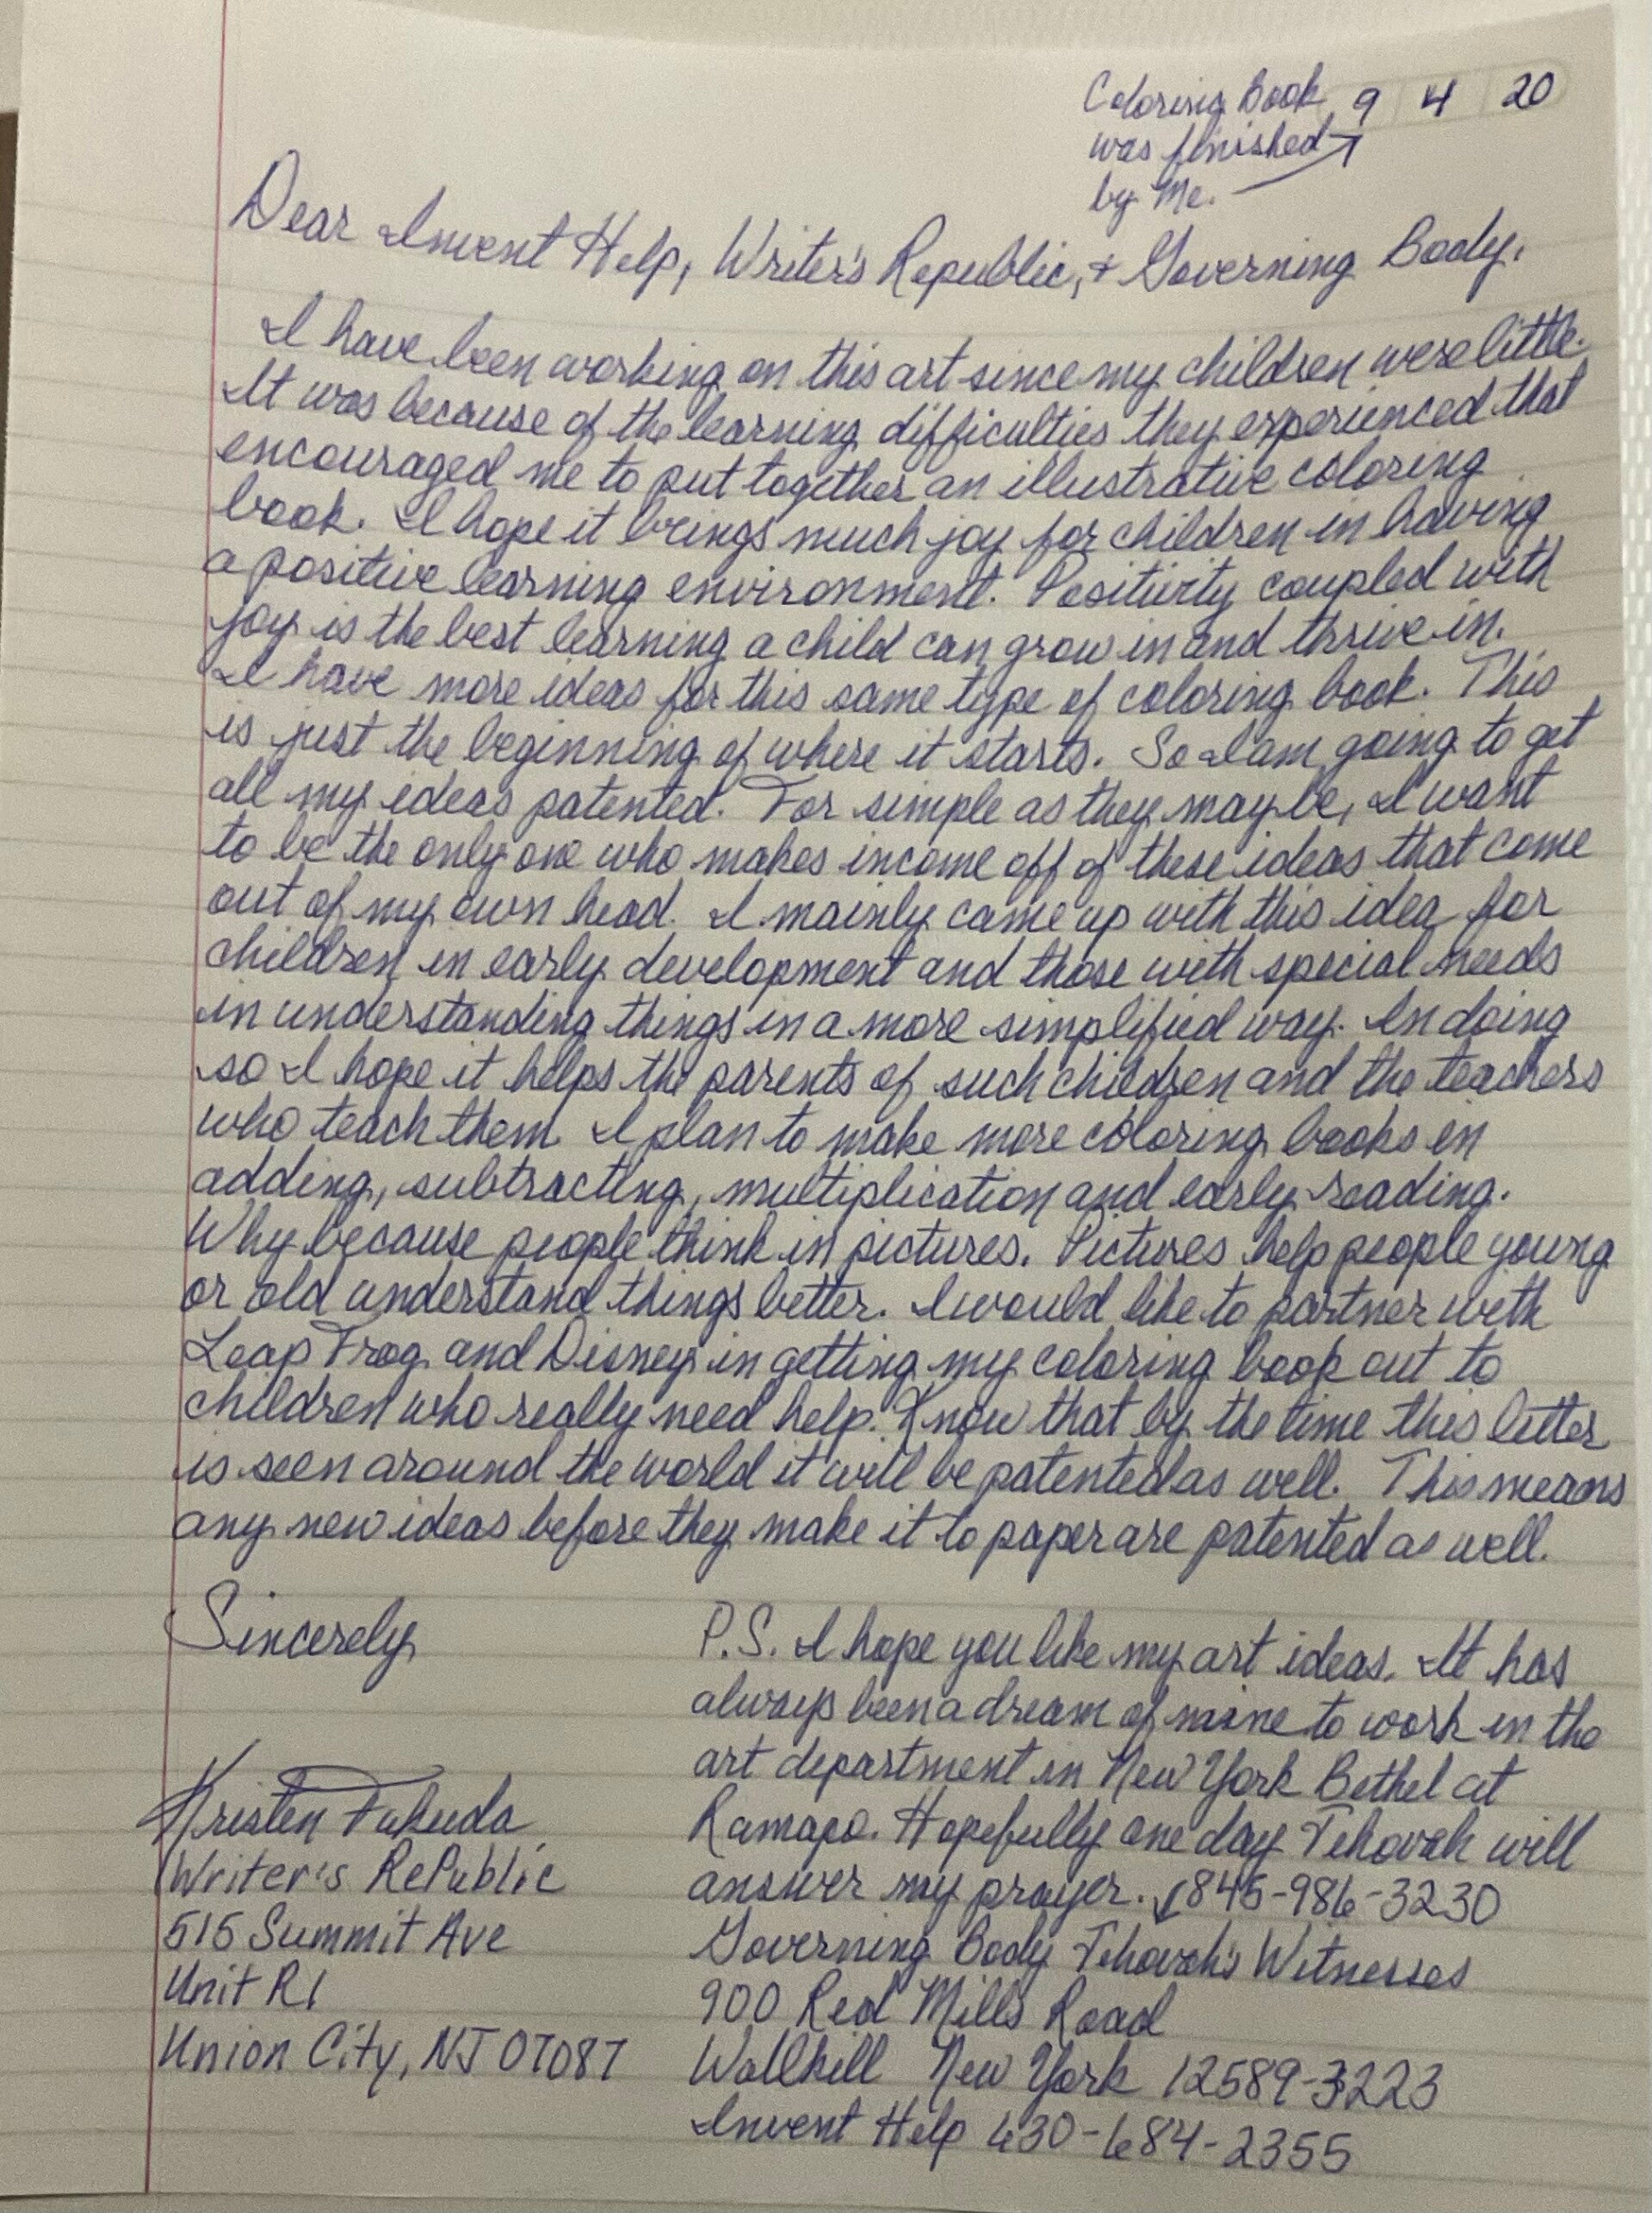 Coloring Book 9 4 20
was finished
by Me.
Dear Invent Help, Writer's Republic, + Governing Body.
I have been working on this art since my children were little.
It was because of the learning difficulties they experienced that
encouraged me to put together an illustrative coloring
book. I hope it brings much joy for children in having
a positive learning environment. Positivity coupled with
joy is the best learning a child can grow in and thrive in.
I have more ideas for this same type of coloring book. This
is just the beginning of where it starts. So I am going to get
all my ideas patented. For simple as they maybe, I want
to be the only one who makes income off of these ideas that come
out of my own head. I mainly came up with this idea for
children in early development and those with special needs
in understanding things in a more simplified way. In doing
so I hope it helps the parents of such children and the teachers
who teach them. I plan to make more coloring books in
adding, subtracting, multiplication and early reading.
Why because people think in pictures. Pictures help people young
or old understand things better. I would like to partner with
Leap Frog and Disney in getting my coloring book out to
children who really need help. Know that by the time this letter
is seen around the world it will be patented as well. This means
any new ideas before they make it to paper are patented as well.
Sincerely
Kristen Fukuda
Writer's RePublic
515 Summit Ave
Unit R1
Union City, NJ 07087
P.S. I hope you like my art ideas. It has
always been a dream of mine to work in the
art department in New York Bethel at
Ramapo. Hopefully one day Jehovah will
answer my prayer. 845-986-3230
Governing Body Jehovah's Witnesses
900 Red Mills Road
Wallkill New York 12589-3223
Invent Help 630-684-2355